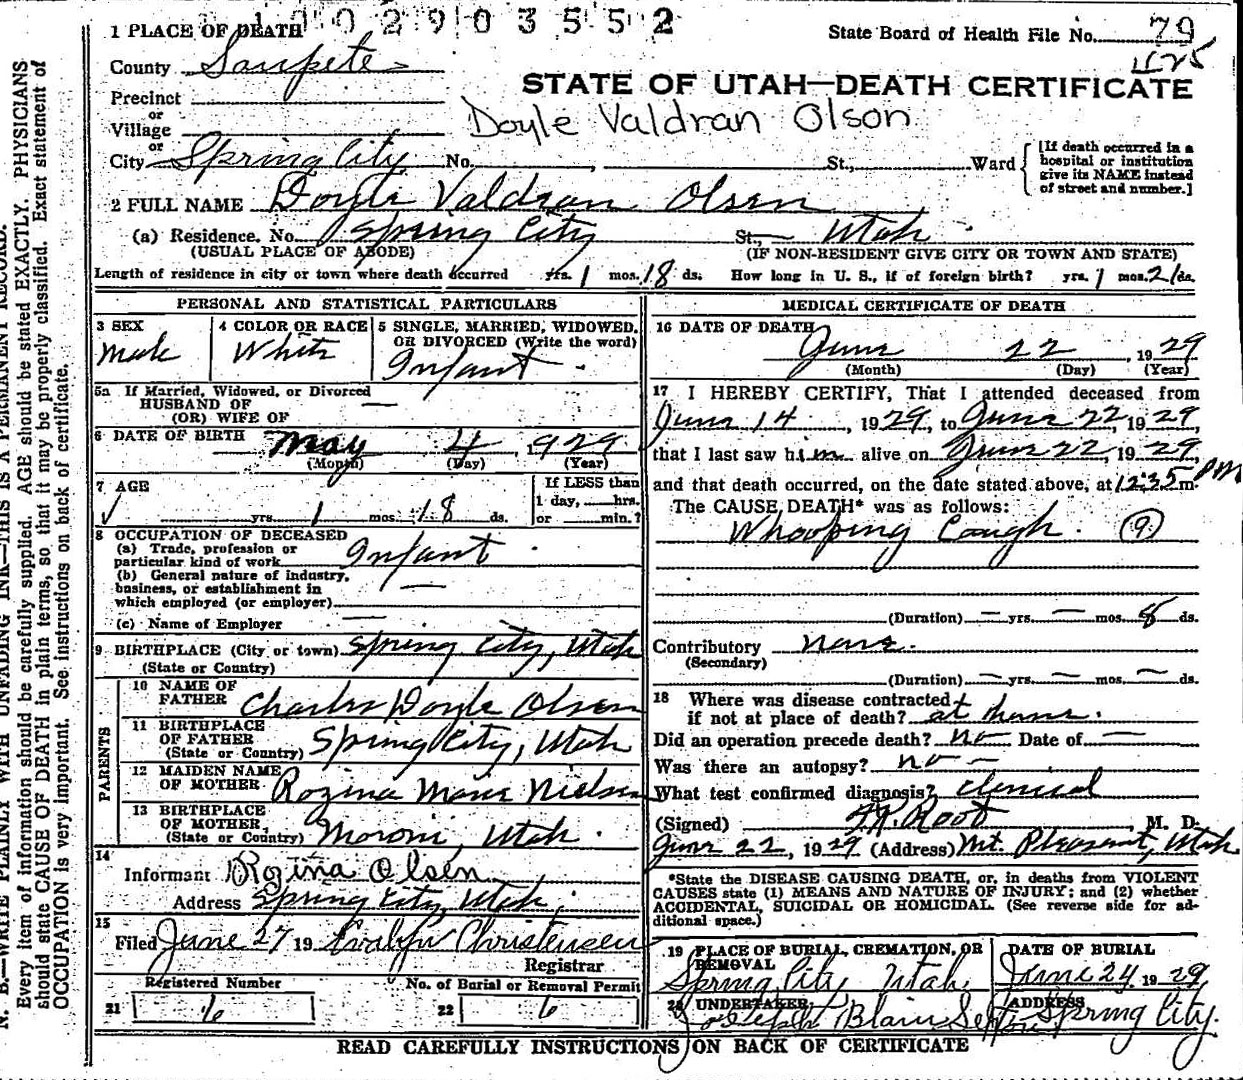 1 0 0 2 9 0 3 5 5 2
1 PLACE OF DEATH
State Board of Health File No. 79
425
County Sanpete
STATE OF UTAH—DEATH CERTIFICATE
Precinct
or
Village
Doyle Valdran Olson
or
City Spring City No. , St., Ward
[If death occurred in a hospital or institution give its NAME instead of street and number.]
2 FULL NAME Doyle Valdran Olsen
(a) Residence. No. Spring City St., — Utah
(USUAL PLACE OF ABODE) (IF NON-RESIDENT GIVE CITY OR TOWN AND STATE)
Length of residence in city or town where death occurred yrs. 1 mos. 18 ds. How long in U. S., if of foreign birth? yrs. 1 mos. 21 ds.
PERSONAL AND STATISTICAL PARTICULARS
3 SEX
Male
4 COLOR OR RACE
White
5 SINGLE, MARRIED, WIDOWED,
OR DIVORCED (Write the word)
Infant
5a If Married, Widowed, or Divorced
HUSBAND OF —
(OR) WIFE OF
6 DATE OF BIRTH May 4 1929
(Month) (Day) (Year)
7 AGE
yrs. 1 mos. 18 ds.
If LESS than
1 day, hrs.
or min.?
8 OCCUPATION OF DECEASED
(a) Trade, profession or
particular kind of work Infant
(b) General nature of industry,
business, or establishment in
which employed (or employer) —
(c) Name of Employer —
9 BIRTHPLACE (City or town) Spring City, Utah
(State or Country)
PARENTS
10 NAME OF
FATHER Charles Doyle Olsen
11 BIRTHPLACE
OF FATHER
(State or Country) Spring City, Utah
12 MAIDEN NAME
OF MOTHER Rozina Marie Nielsen
13 BIRTHPLACE
OF MOTHER
(State or Country) Moroni, Utah.
14
Informant Rozina Olsen
Address Spring City, Utah.
15
Filed June 27 19 Evalyn Christensen
Registrar
Registered Number
21 6
No. of Burial or Removal Permit
22 6
MEDICAL CERTIFICATE OF DEATH
16 DATE OF DEATH
June 22, 1929
(Month) (Day) (Year)
17 I HEREBY CERTIFY, That I attended deceased from
June 14, 1929, to June 22, 1929,
that I last saw him alive on June 22, 1929,
and that death occurred, on the date stated above, at 12:35 m. PM
The CAUSE DEATH* was as follows:
Whooping Cough. (9)
(Duration) — yrs. — mos. 8 ds.
Contributory none.
(Secondary)
(Duration) — yrs. — mos. — ds.
18 Where was disease contracted
if not at place of death? at home.
Did an operation precede death? no Date of —
Was there an autopsy? no —
What test confirmed diagnosis? clinical
(Signed) Root, M. D.
June 22, 1929 (Address) Mt. Pleasant, Utah
*State the DISEASE CAUSING DEATH, or, in deaths from VIOLENT
CAUSES state (1) MEANS AND NATURE OF INJURY; and (2) whether
ACCIDENTAL, SUICIDAL OR HOMICIDAL. (See reverse side for ad-
ditional space.)
19 PLACE OF BURIAL, CREMATION, OR
REMOVAL
Spring City Utah
DATE OF BURIAL
June 24 1929
20 UNDERTAKER
Joseph Blain
ADDRESS
Spring City.
READ CAREFULLY INSTRUCTIONS ON BACK OF CERTIFICATE
N. B.—WRITE PLAINLY WITH UNFADING INK—THIS IS A PERMANENT RECORD.
Every item of information should be carefully supplied. AGE should be stated EXACTLY. PHYSICIANS
should state CAUSE OF DEATH in plain terms, so that it may be properly classified. Exact statement of
OCCUPATION is very important. See instructions on back of certificate.